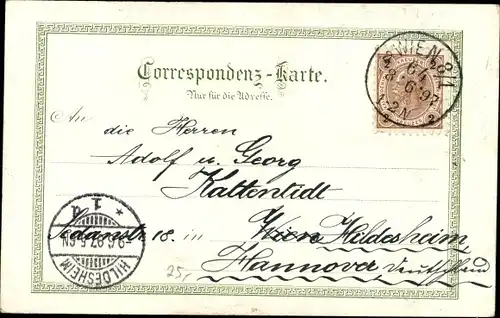 Correspondenz-Karte.
Nur für die Adresse.
WIEN 8/1
6 97
An
die Herren
Adolf u. Georg
Kattentidt
Sedanstr 18. in Wien Hildesheim,
Hannover, Deutschland
HILDESHEIM
* 1 d.
9.6.97.5-6N
25,-
2 2